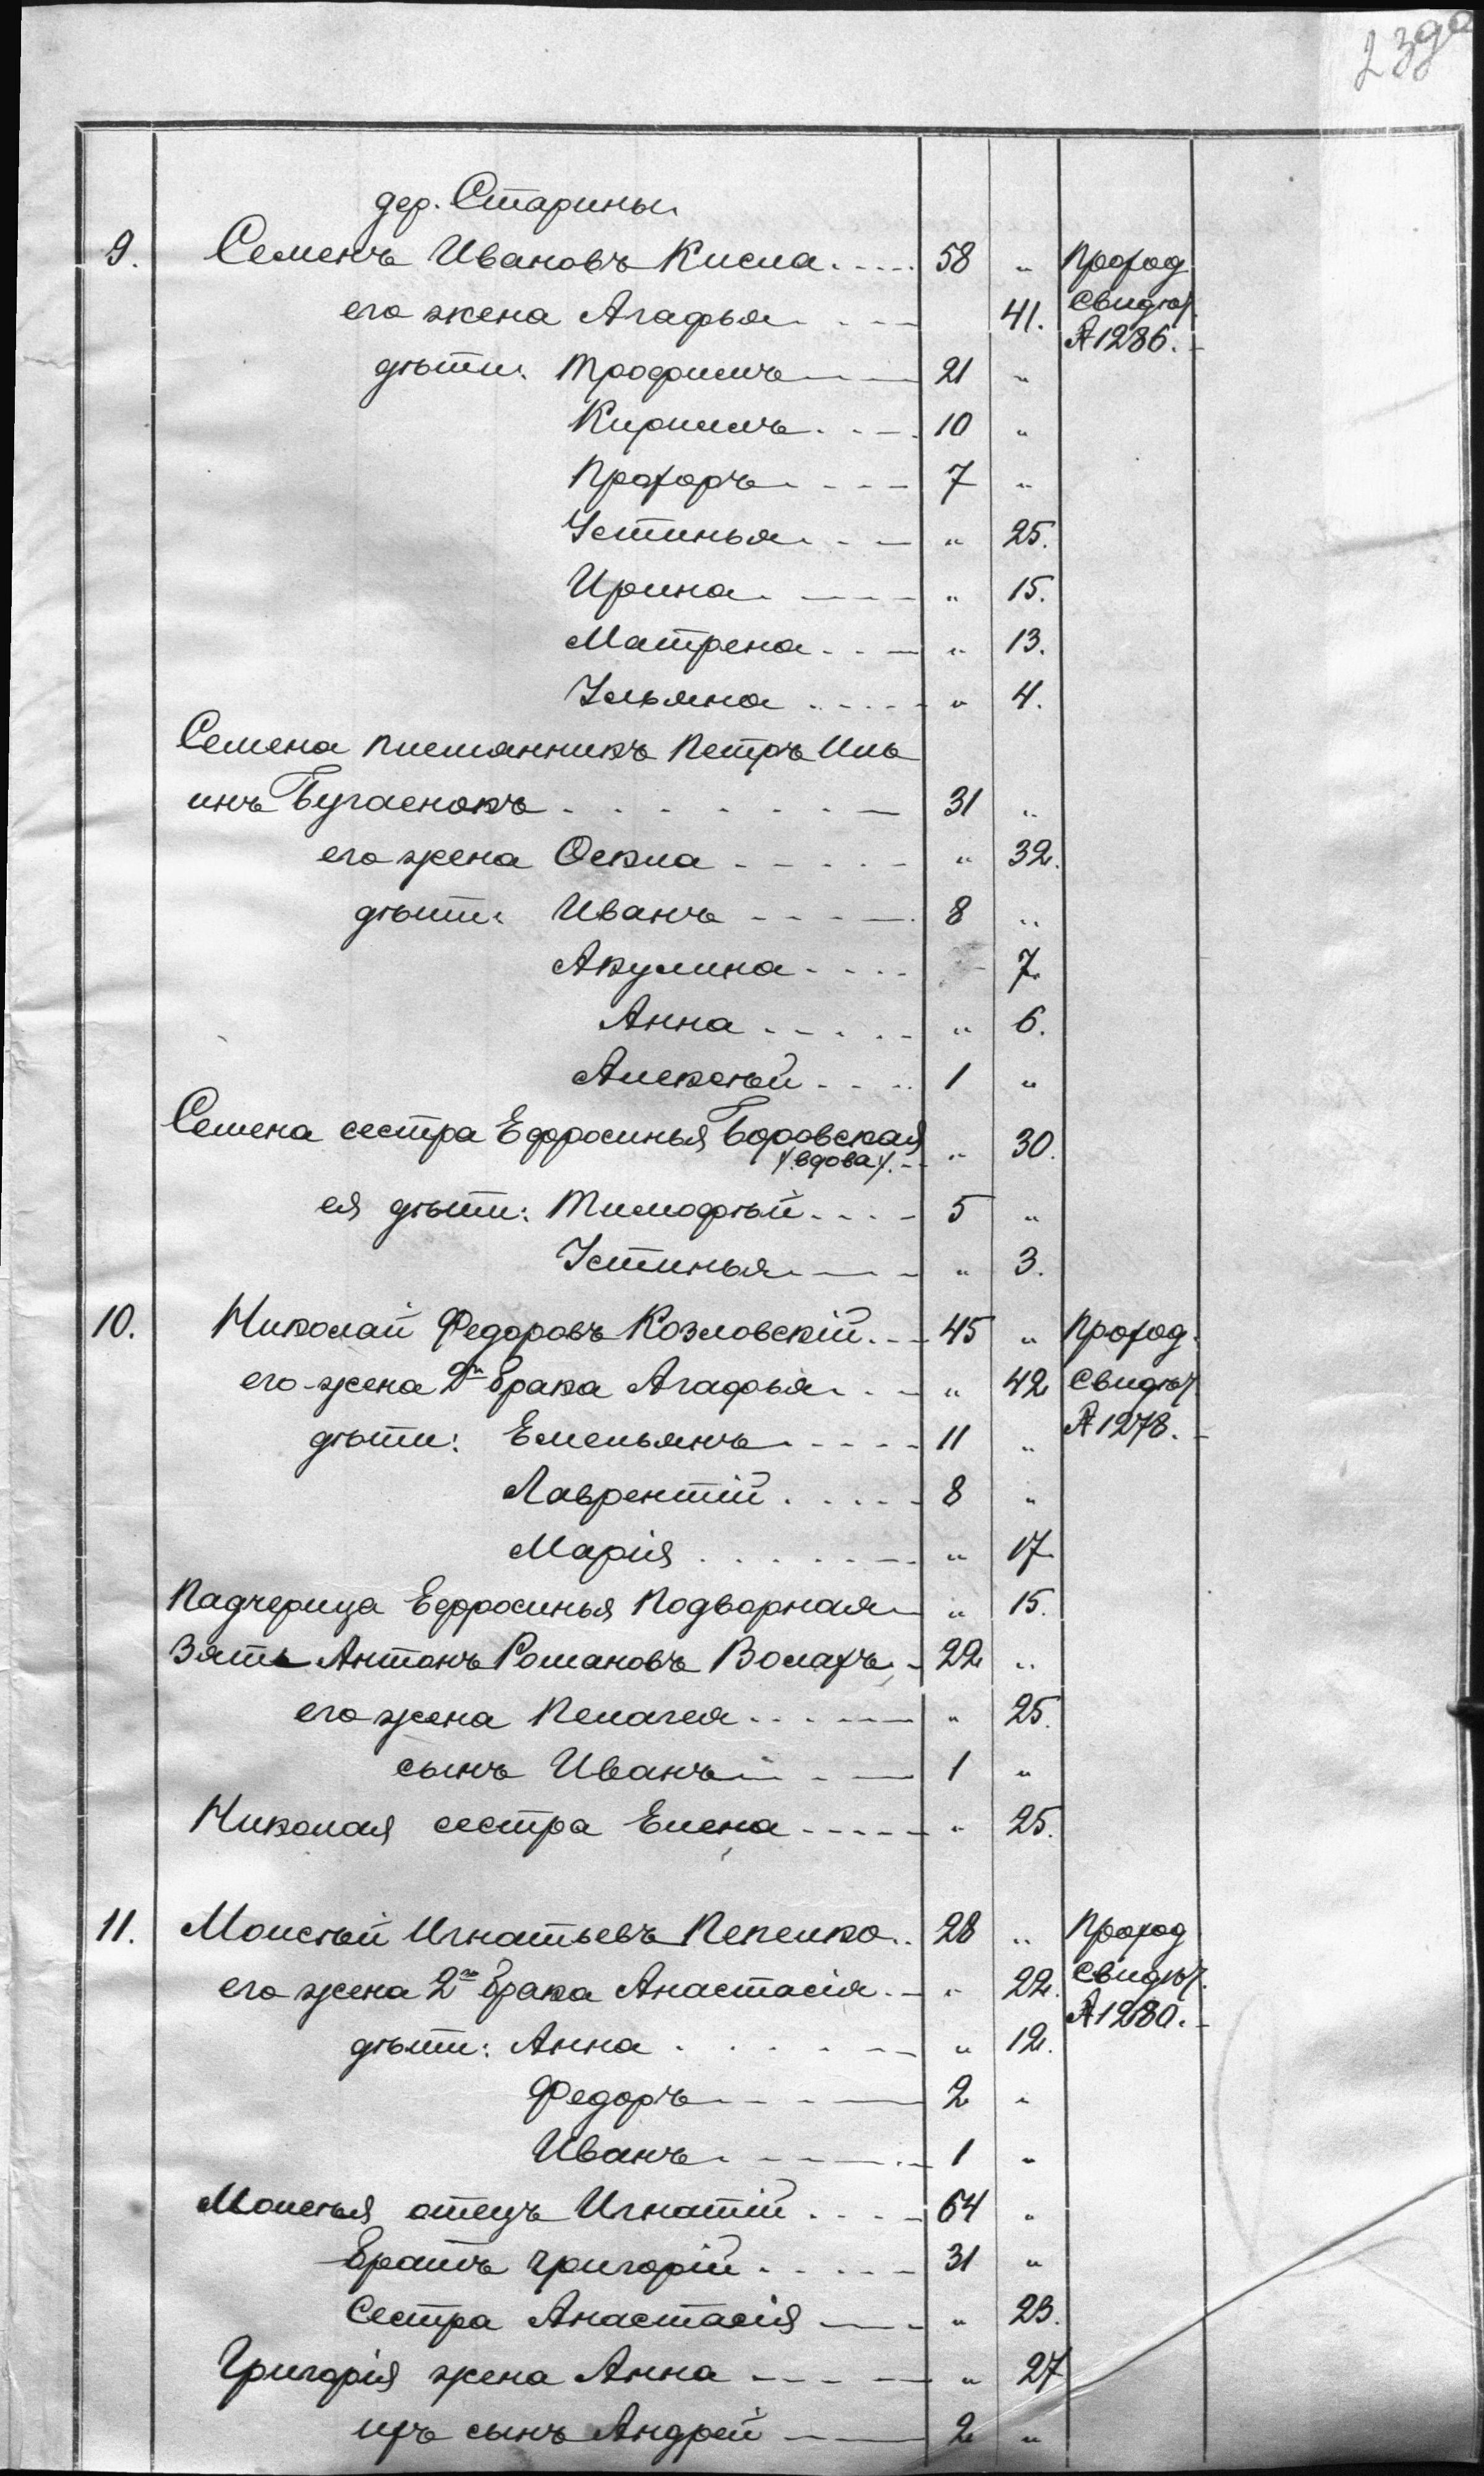 239
дер. Старины
9. Семенъ Ивановъ Кисла . . . . 58 „ Проход.
его жена Агафья . . . 41. свидѣт.
№ 1286.
дѣти: Трофимъ 21 „
Кирилъ . . . 10 „
Прохоръ . . . 7 „
Устинья . . . „ 25.
Ирина . . . „ 15.
Матрена . . . „ 13.
Ульяна . . . . „ 4.
Семена племянникъ Петръ Иль
инъ Бугаенокъ . . . . . . . 31 „
его жена Фекла . . . . . „ 32.
дѣти: Иванъ . . . . 8 „
Акулина . . . . 7.
Анна . . . . . „ 6.
Алексѣй . . . . 1 „
Семена сестра Ефросинья Боровская
/вдова/. „ 30.
ея дѣти: Тимофѣй . . . . 5 „
Устинья „ 3.
10. Николай Федоровъ Козловскій . . . 45 „ Проход.
его жена 2го брака Агафья . . . „ 42 свидѣт.
дѣти: Емельянъ . . . . 11 „ № 1278.
Лаврентій . . . . . 8 „
Марія . . . . . . . „ 17
Падчерица Ефросинья Подворная „ 15.
Зять Антонъ Романовъ Волахъ 22 „
его жена Пелагея . . . „ 25.
сынъ Иванъ 1 „
Николая сестра Елена . . . . . „ 25.
11. Моисѣй Игнатьевъ Пепелко . . 28 „ Проход
его жена 2го брака Анастасія . . „ 22. свидѣт.
№ 1280.
дѣти: Анна . . . . . . „ 12.
Федоръ 2 „
Иванъ . . . . . 1 „
Моисѣя отецъ Игнатій . . . . 64 „
братъ Григорій . . . . . 31 „
сестра Анастасія „ 23.
Григорія жена Анна „ 27
ихъ сынъ Андрей 2 „